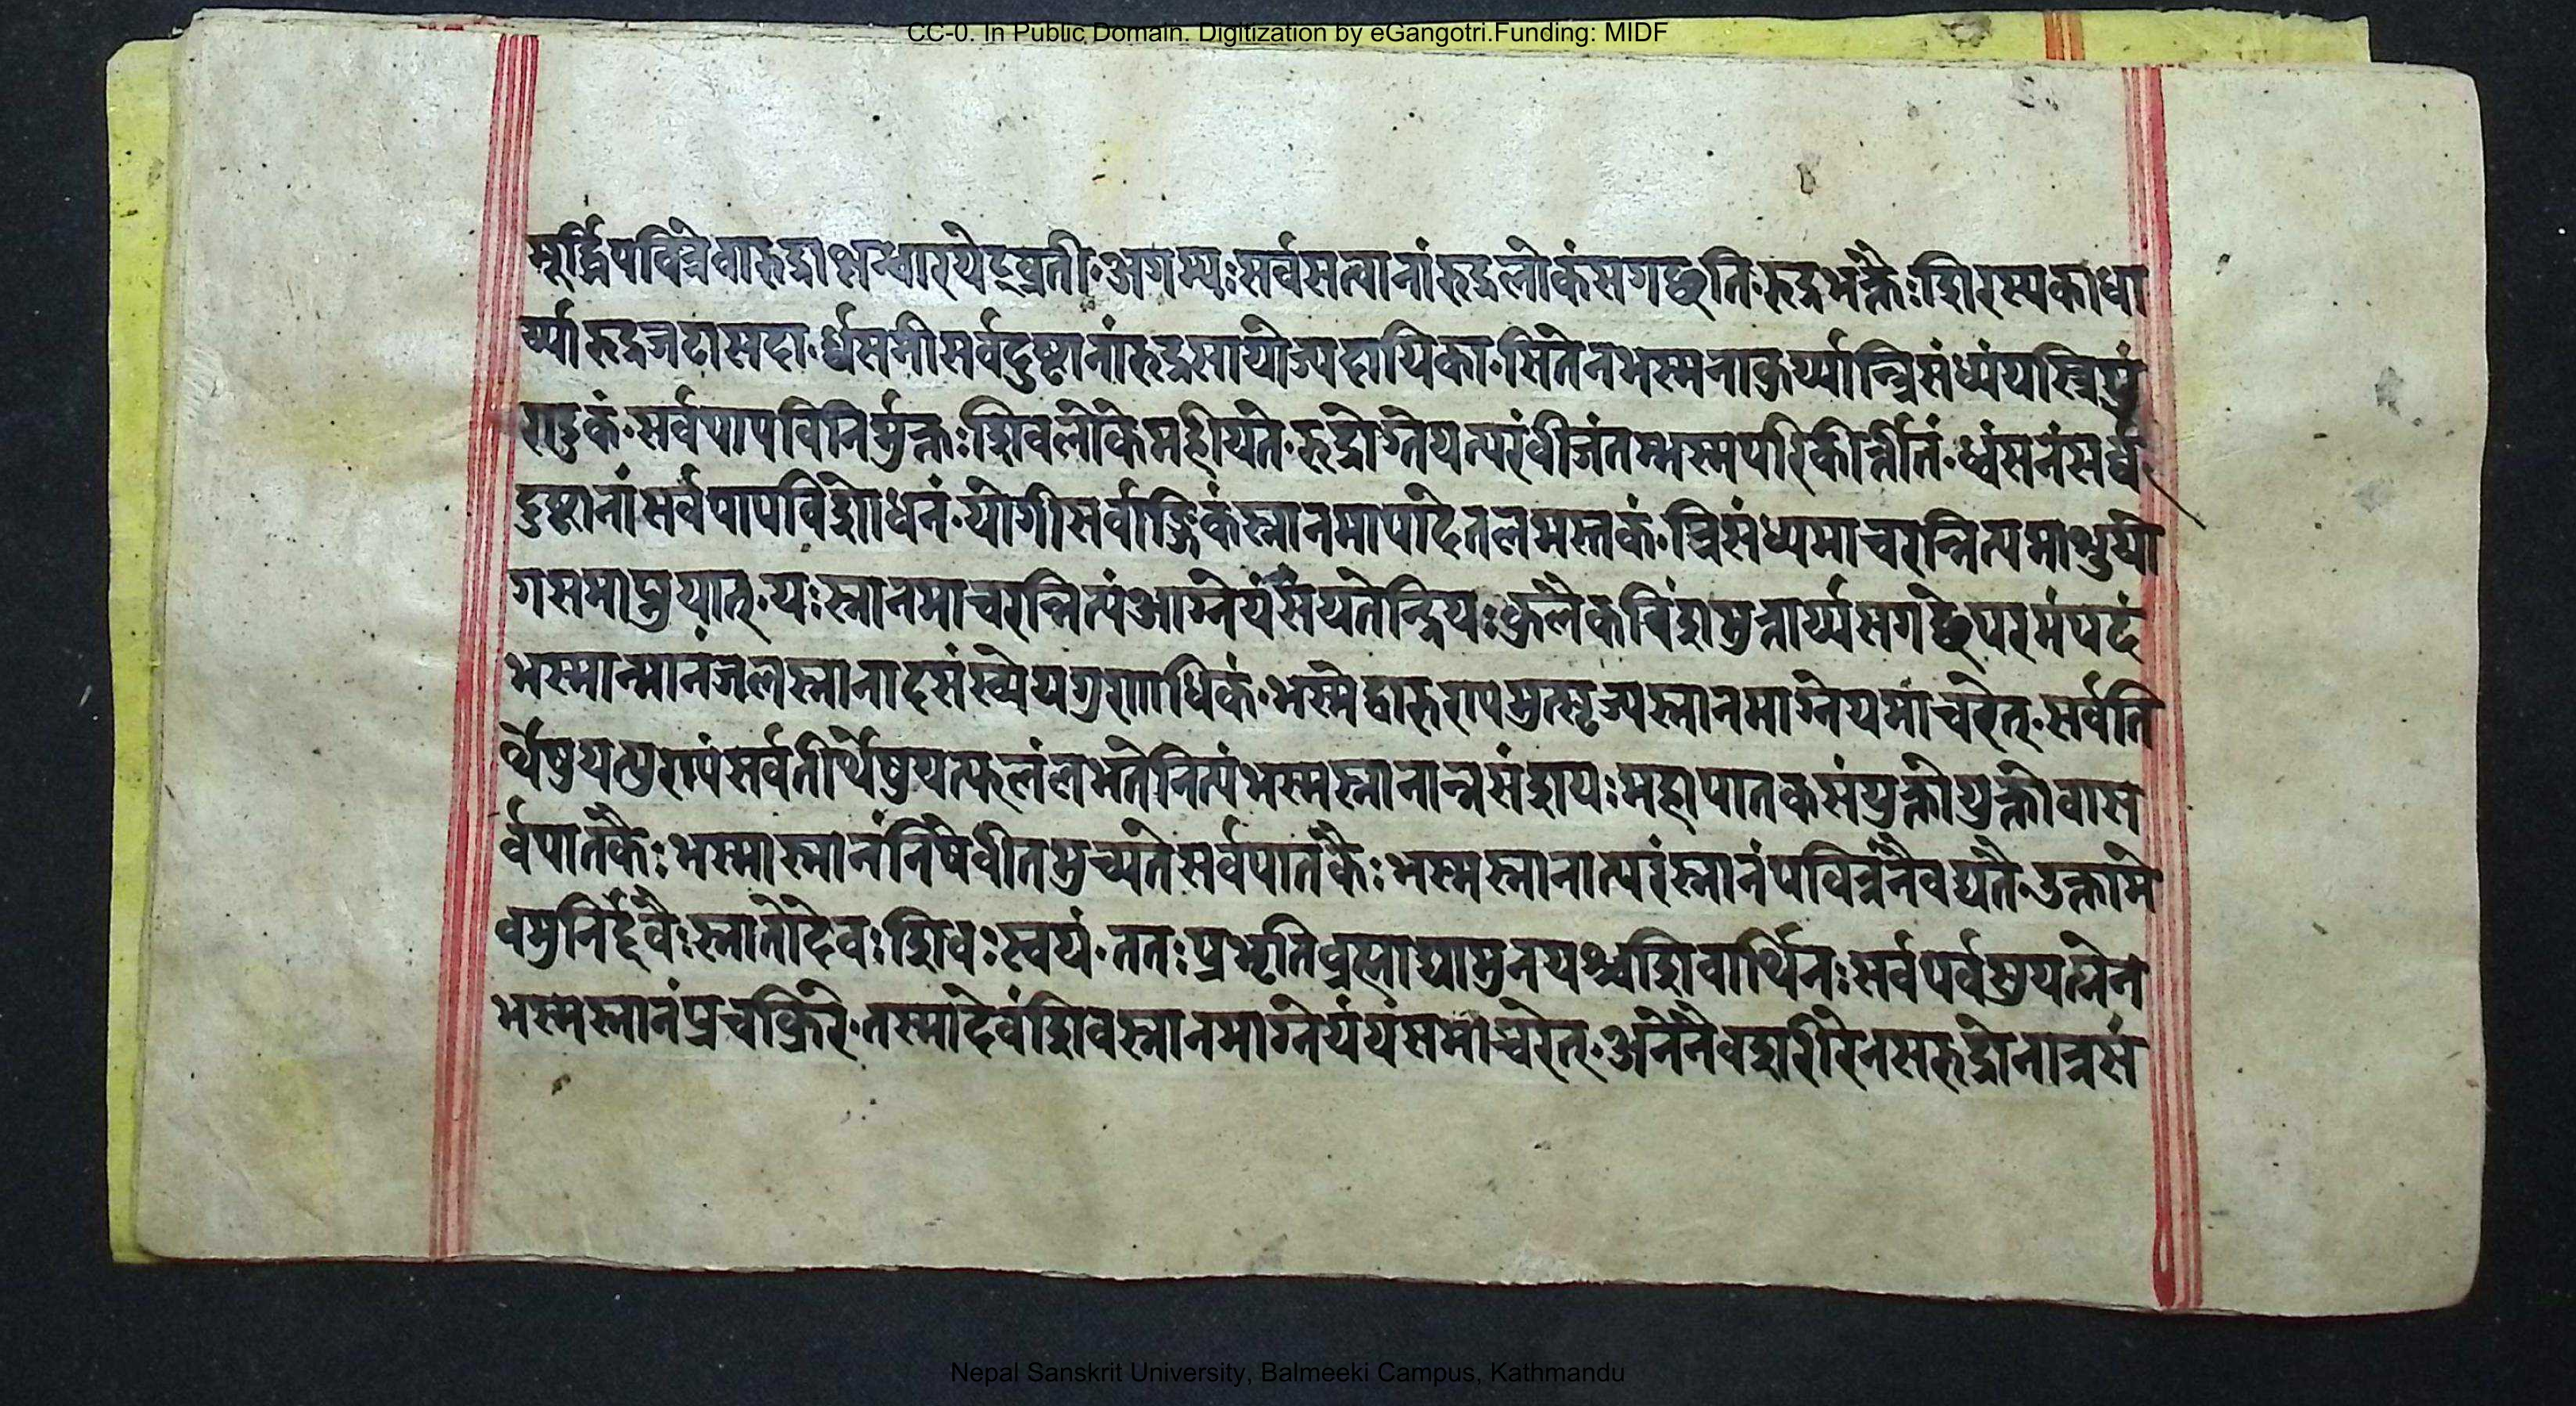 CC-0. In Public Domain. Digitization by eGangotri.Funding: MIDF
मूर्द्ध्निपवित्रेवारुद्राक्षन्धारयेद्व्रती.अगम्यःसर्वसत्वानांरुद्रलोकंसगछति.रुद्रभक्तैःशिरस्यकाधा
र्य्यारुद्रजटासदा.र्ध्वसनीसर्वदुष्टानांरुद्रसायोज्यदायिका.सितेनभस्मनाकुर्य्यान्त्रिसंध्यंयस्त्रिपुं
राडुकं.सर्वपापविनिर्मुक्तःशिवलोकेमहीयते.रुद्राेग्नेयत्परंवीजंतम्भस्मपरिकीर्त्तीतं.ध्वंसनंसर्व्व
दुष्टानांसर्वपापविशोधनं.योगीसर्वाङ्गिकंस्नानमापादतलमस्तकं.त्रिसंध्यमाचरन्नित्यमाशुयो
गसमाप्नुयात्.यःस्नानमाचरन्नित्यंआग्नेयंसंयतेन्द्रियःकुलैकविंशमुत्तार्य्यसगछेपरमंपदं
भस्मान्मानंजलस्नानादसंख्येयगुणाधिकं.भस्मेद्वारुराप्मुत्सृज्यस्नानमाग्नेयमाचरेत्.सर्वति
र्थेषुयत्पुण्यंसर्वतीर्थेषुयत्फलंलभतेनित्यंभस्मस्नानान्नसंशयःमहापातकसंयुक्तोयुक्तोवास
र्वपातकैःभस्मास्नानंनिषेवीतमुच्यतेसर्वपातकैःभस्मस्नानात्परंस्नानंपवित्रंनैवद्यते.उक्तामे
वमुनिर्द्देवैःस्नातोदेवःशिवःस्वयं.ततःप्रभृतिव्रह्माद्यामुनयश्चशिवार्थिनःसर्वपर्वसुयत्नेन
भस्मस्नानंप्रचक्रिरे.तस्मादेवंशिवस्नानमाग्नेयंयंसमाचरेत्.अनेनैवशरीरेनसरुद्रोनात्रसं
Nepal Sanskrit University, Balmeeki Campus, Kathmandu